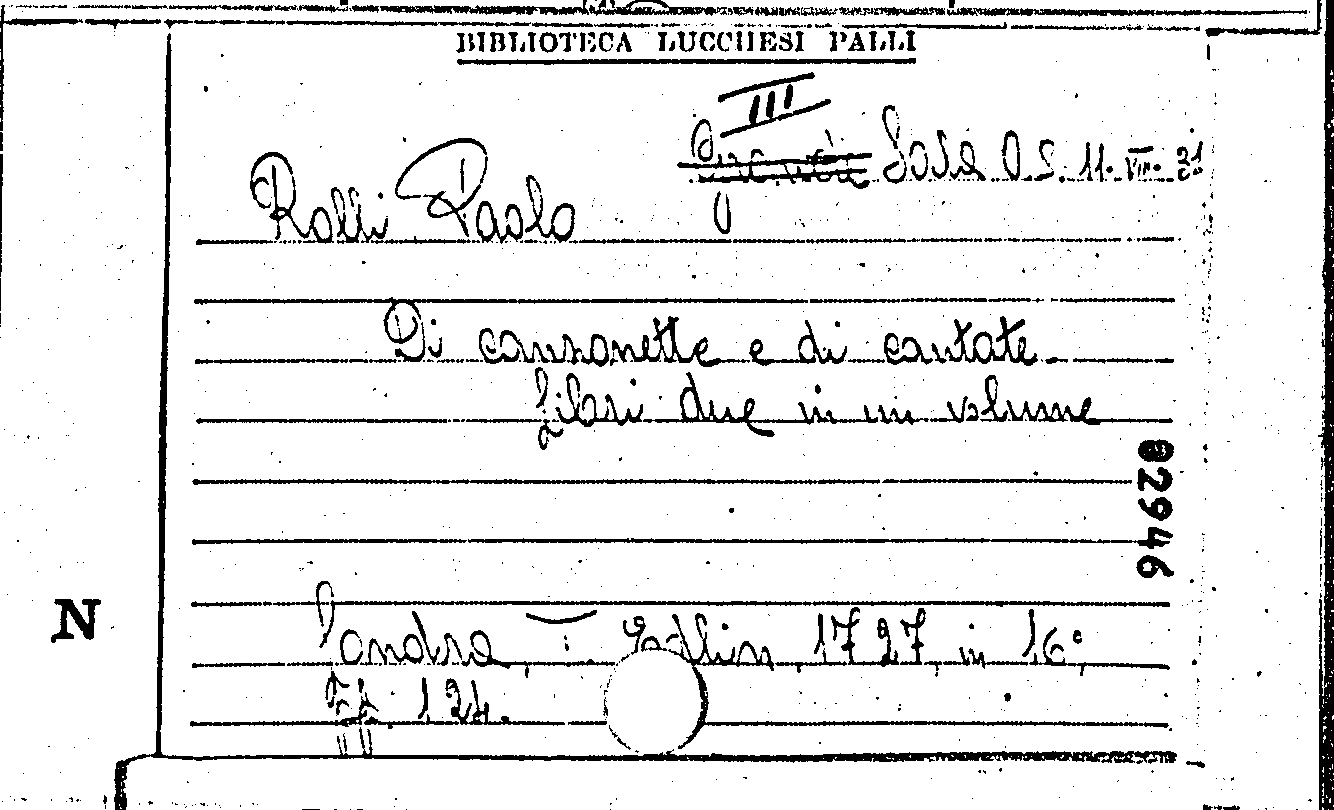 BIBLIOTECA LUCCHESI PALLI
III
Sala O.S. 11. VIII. 31
Rolli Paolo
Di canzonette e di cantate
Libri due in un volume
82946
N
Londra, T. Edlin, 1727, in 16°,
pp. 124.